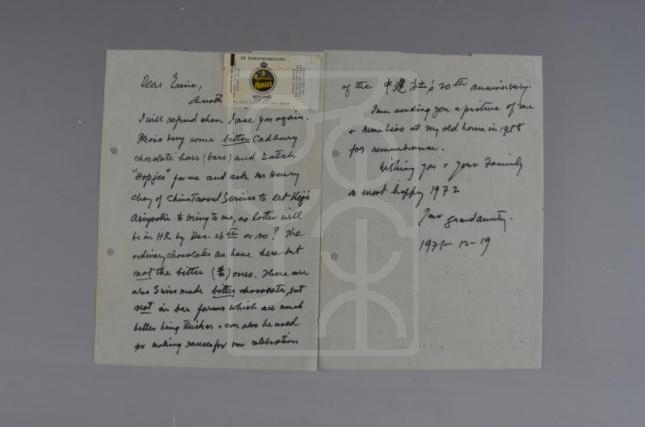 Dear Ernie,
I will refund when I see you again.
Please buy some bitter Cadbury
chocolate bars (bars) and Dutch
"Hopjes" for me and ask Mr Henry
Chay of China Travel Service to let
to bring to me, as will
be in HK by Dec. 26th or so? The
ordinary chocolates we have here but
not the bitter (苦) ones. There are
also Swiss made bitter chocolates, but
not in bar forms which are much
better being thicker + can also be used
for making sauces for our celebration
HOPJES
of the 中建 20th anniversary.
I am sending you a picture of me
+ at my old home in 1958
for remembrance.
Wishing you + your Family
a most happy 1972
Your grandaunty.
1971-12-19